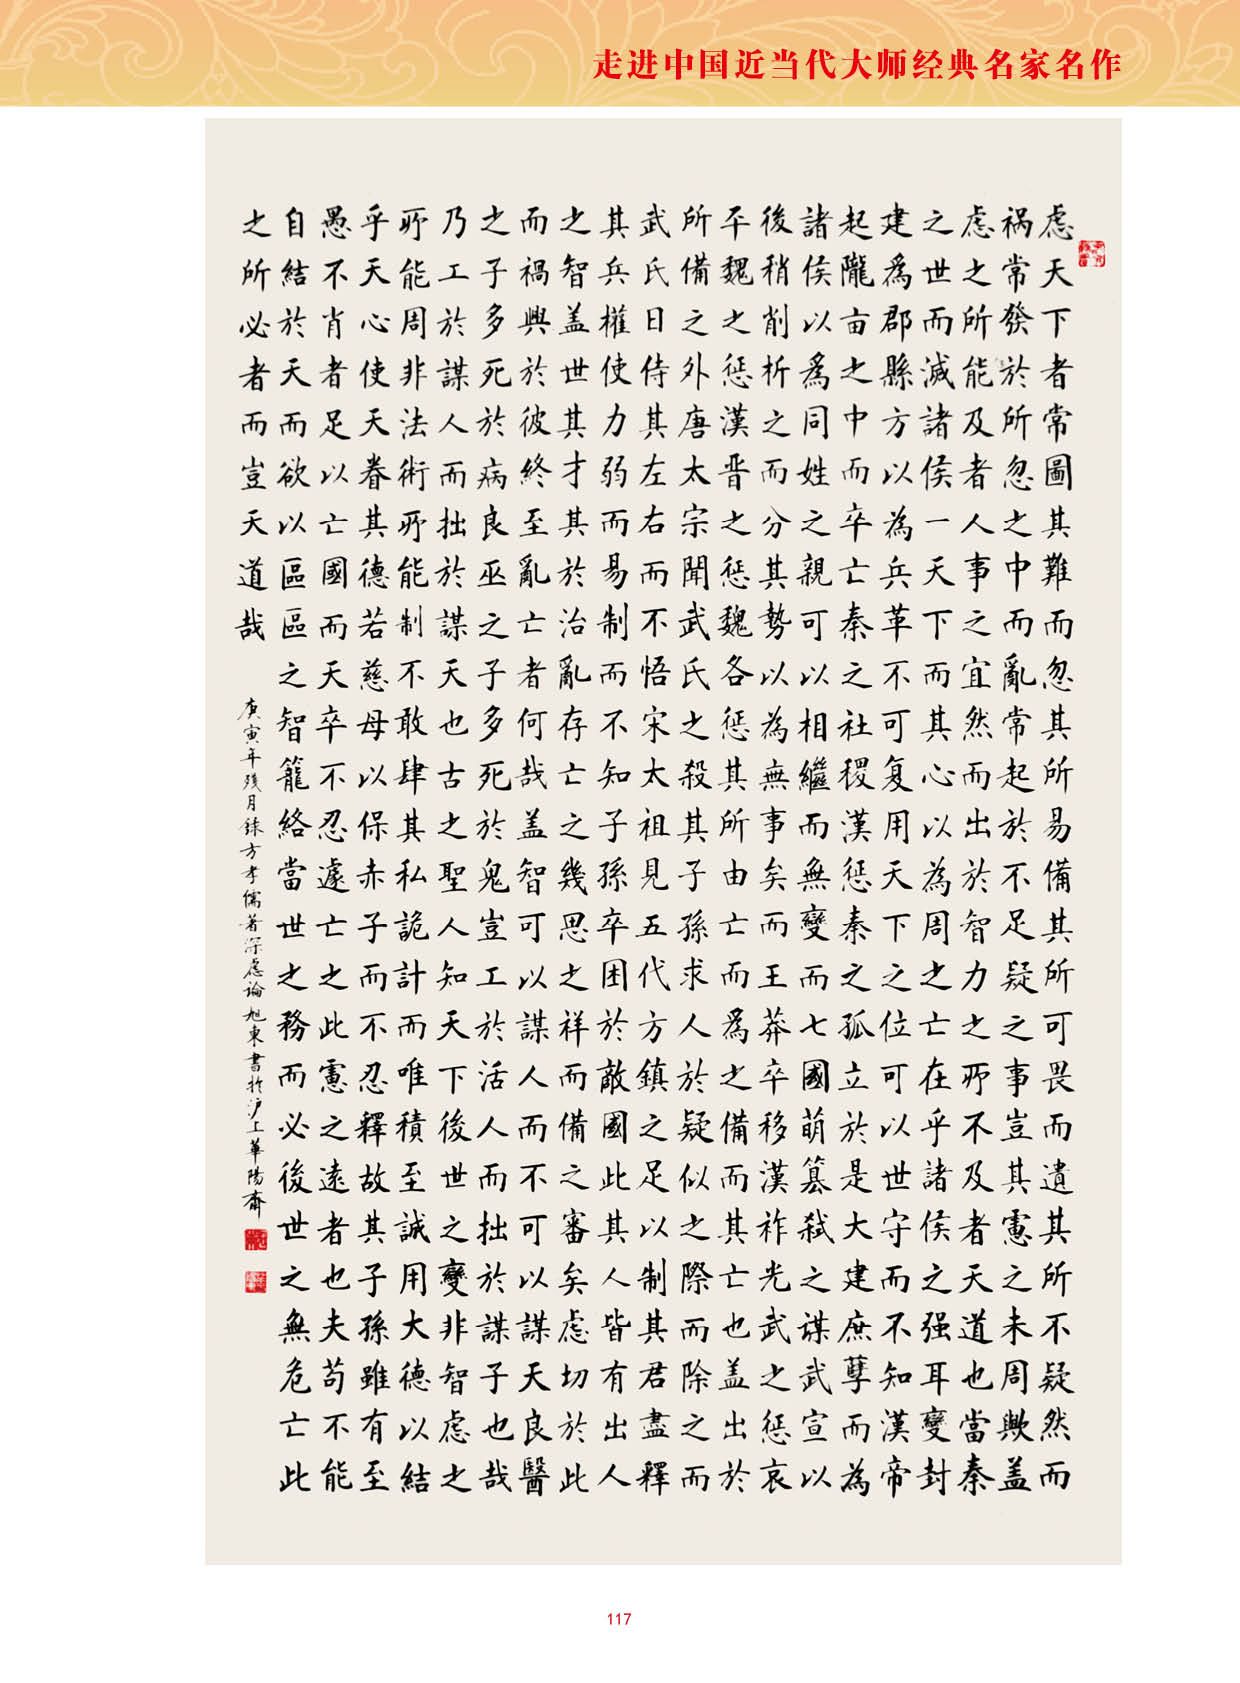 走进中国近当代大师经典名家名作
虑天下者常圖其難而忽其所易備其所可畏而遺其所不疑然而
祸常發於所忽之中而亂常起於不足疑之事豈其慮之未周歟盖
虑之所能及者人事之宜然而出於智力之所不及者天道也當秦
之世而滅諸侯一天下而其心以為周之亡在乎諸侯之强耳變封
建爲郡縣方以為兵革不可复用天下之位可以世守而不知漢帝
起隴亩之中而卒亡秦之社稷漢惩秦之孤立於是大建庶孽而為
諸侯以爲同姓之親可以相繼而無變而七國萌篡弒之谋武宣以
後稍削析之而分其勢以為無事矣而王莽卒移漢祚光武之惩哀
平魏之惩漢晋之惩魏各惩其所由亡而爲之備而其亡也盖出於
所備之外唐太宗聞武氏之殺其子孫求人於疑似之際而除之而
武氏日侍其左右而不悟宋太祖見五代方鎮之足以制其君盡釋
其兵權使力弱而易制而不知子孫卒困於敵國此其人皆有出人
之智盖世其才其於治亂存亡之幾思之祥而備之審矣虑切於此
而禍興於彼終至亂亡者何哉盖智可以謀人而不可以謀天良醫
之子多死於病良巫之子多死於鬼豈工於活人而拙於謀子也哉
乃工於謀人而拙於謀天也古之聖人知天下後世之變非智虑之
所能周非法術所能制不敢肆其私詭計而唯積至誠用大德以結
乎天心使天眷其德若慈母以保赤子而不忍釋故其子孫雖有至
愚不肖者足以亡國而天卒不忍遽亡之此慮之遠者也夫苟不能
自結於天而欲以區區之智籠絡當世之務而必後世之無危亡此
之所必者而豈天道哉
庚寅年残月録方孝儒著深慮論旭東書於沪上華陽齋
117